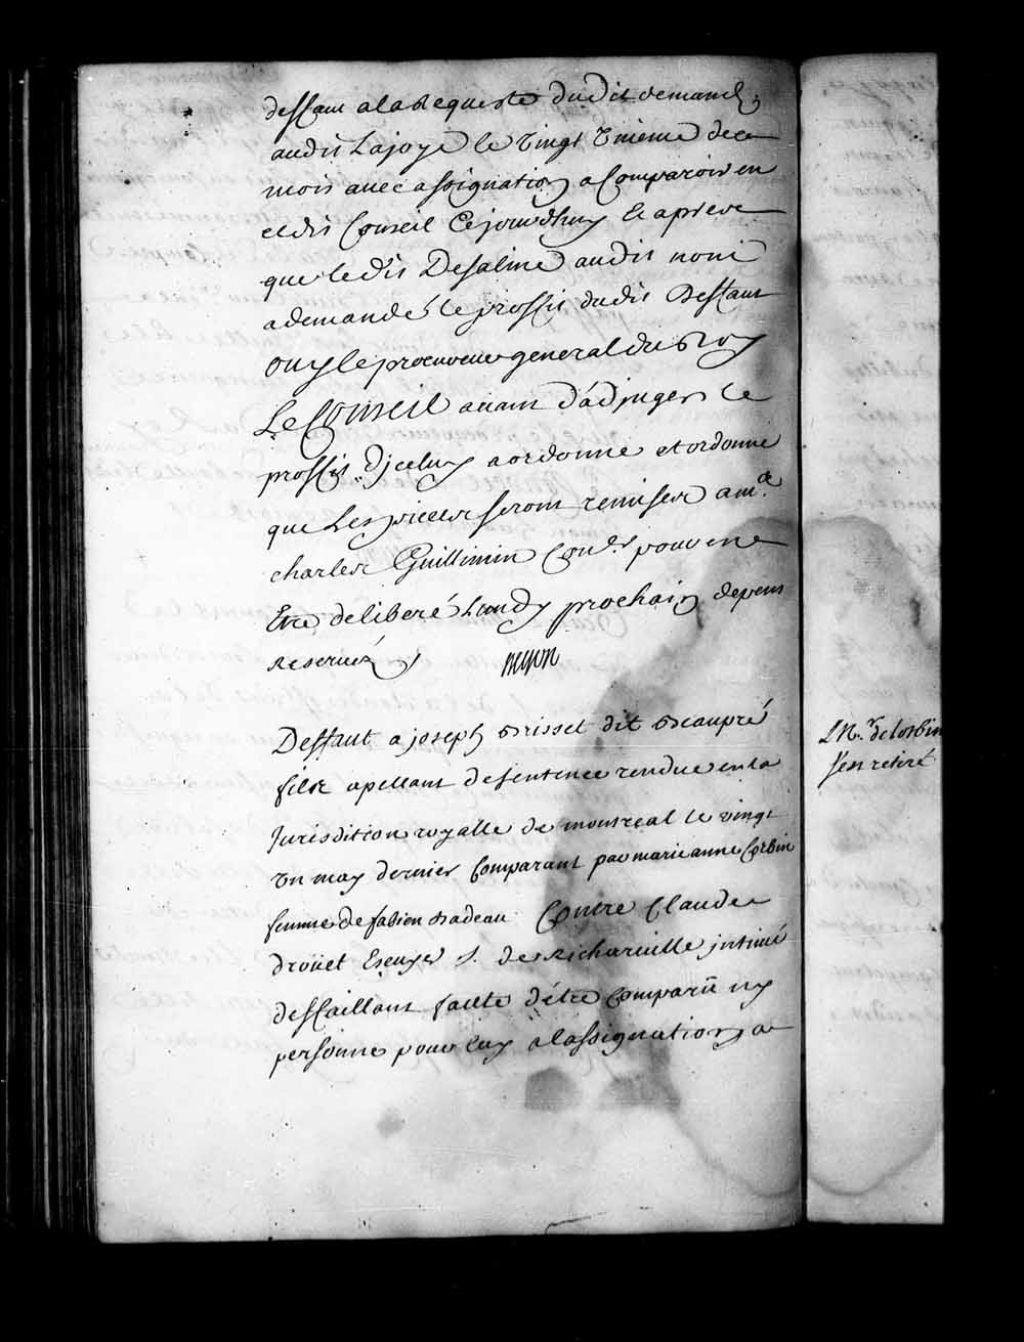 deffaut a la Requeste dudit demand.r
audit Lajoye le vingt unieme de ce
mois avec assignation a Comparoir en
cedit Conseil Cejourdhuy Et apres
que ledit Desaline audit nom
a demandé le proffit dudit Deffaut
ouy le procureur general du Roy
Le Conseil avant d'adjuger le
proffit d'jceluy a ordonné et ordonne
que Les pieces seront remises a me.
charles Guillimin Con.er pour en
Etre deliberé Lundy prochain depens
Reservéz /
Begon
Deffaut a joseph Brisset dit Beaupré
fils apellant de sentence rendue en la
Jurisdition royalle de montreal le vingt
un may dernier Comparant par marie anne Corbin
femme de fabien Badeau Contre Claude
droüet Escuyer S. de Richarville jntimé
deffaillant faute d'être Comparü ny
personne pour luy a lassignation a
M.r de Lorbin
s'en retiré